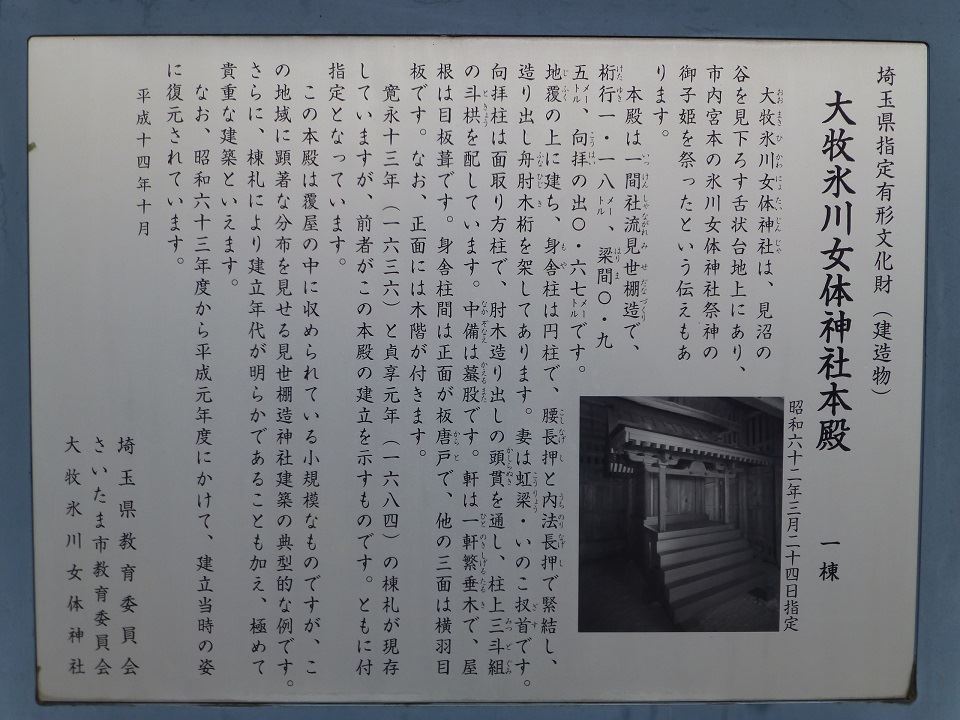 埼玉県指定有形文化財（建造物）
大牧氷川女体神社本殿　一棟
昭和六十二年三月二十四日指定
大牧氷川女体神社は、見沼の
谷を見下ろす舌状台地上にあり、
市内宮本の氷川女体神社祭神の
御子姫を祭ったという伝えもあ
ります。
本殿は一間社流見世棚造で、
桁行一・一八メートル、梁間〇・九
五メートル、向拝の出〇・六七メートルです。
地覆の上に建ち、身舎柱は円柱で、腰長押と内法長押で緊結し、
造り出し舟肘木桁を架してあります。妻は虹梁・いのこ扠首です。
向拝柱は面取り方柱で、肘木造り出しの頭貫を通し、柱上三斗組
の斗栱を配しています。中備は蟇股です。軒は一軒繁垂木で、屋
根は目板葺です。身舎柱間は正面が板唐戸で、他の三面は横羽目
板です。なお、正面には木階が付きます。
寛永十三年（一六三六）と貞享元年（一六八四）の棟札が現存
していますが、前者がこの本殿の建立を示すものです。ともに付
指定となっています。
この本殿は覆屋の中に収められている小規模なものですが、こ
の地域に顕著な分布を見せる見世棚造神社建築の典型的な例です。
さらに、棟札により建立年代が明らかであることも加え、極めて
貴重な建築といえます。
なお、昭和六十三年度から平成元年度にかけて、建立当時の姿
に復元されています。
平成十四年十月
埼玉県教育委員会
さいたま市教育委員会
大牧氷川女体神社